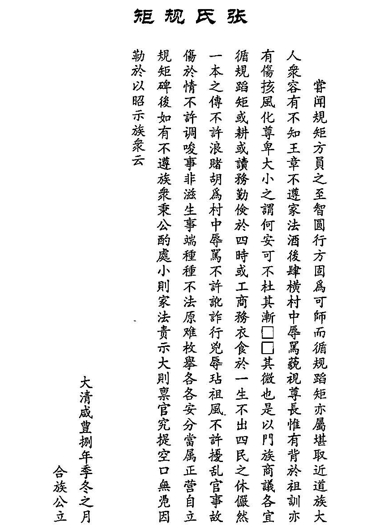 张氏规矩
嘗闻規矩方員之至智圓行方固爲可師而循規蹈矩亦屬堪取近道族大
人衆容有不知王章不遵家法酒後肆橫村中辱罵藐視尊長惟有背於祖訓亦
有傷孩風化尊卑大小之謂何安可不杜其漸□□其微也是以門族商議各宜
循規蹈矩或耕或讀務勤儉於四時或工商務衣食於一生不出四民之休儼然
一本之傳不許浪賭胡爲村中辱罵不許訛詐行兇辱玷祖風不許擾亂官事故
傷於情不許调唆事非滋生事端種種不法原难枚舉各各安分當属正营自立
規矩碑後如有不遵族衆秉公酌處小則家法责示大則禀官究提空口無凴因
勒於以昭示族衆云
大清咸豐捌年季冬之月
合族公立